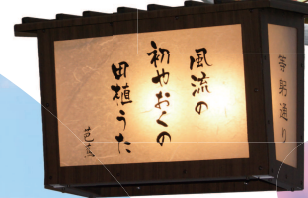 風流の
初やおくの
田植うた
芭蕉
等躬通り